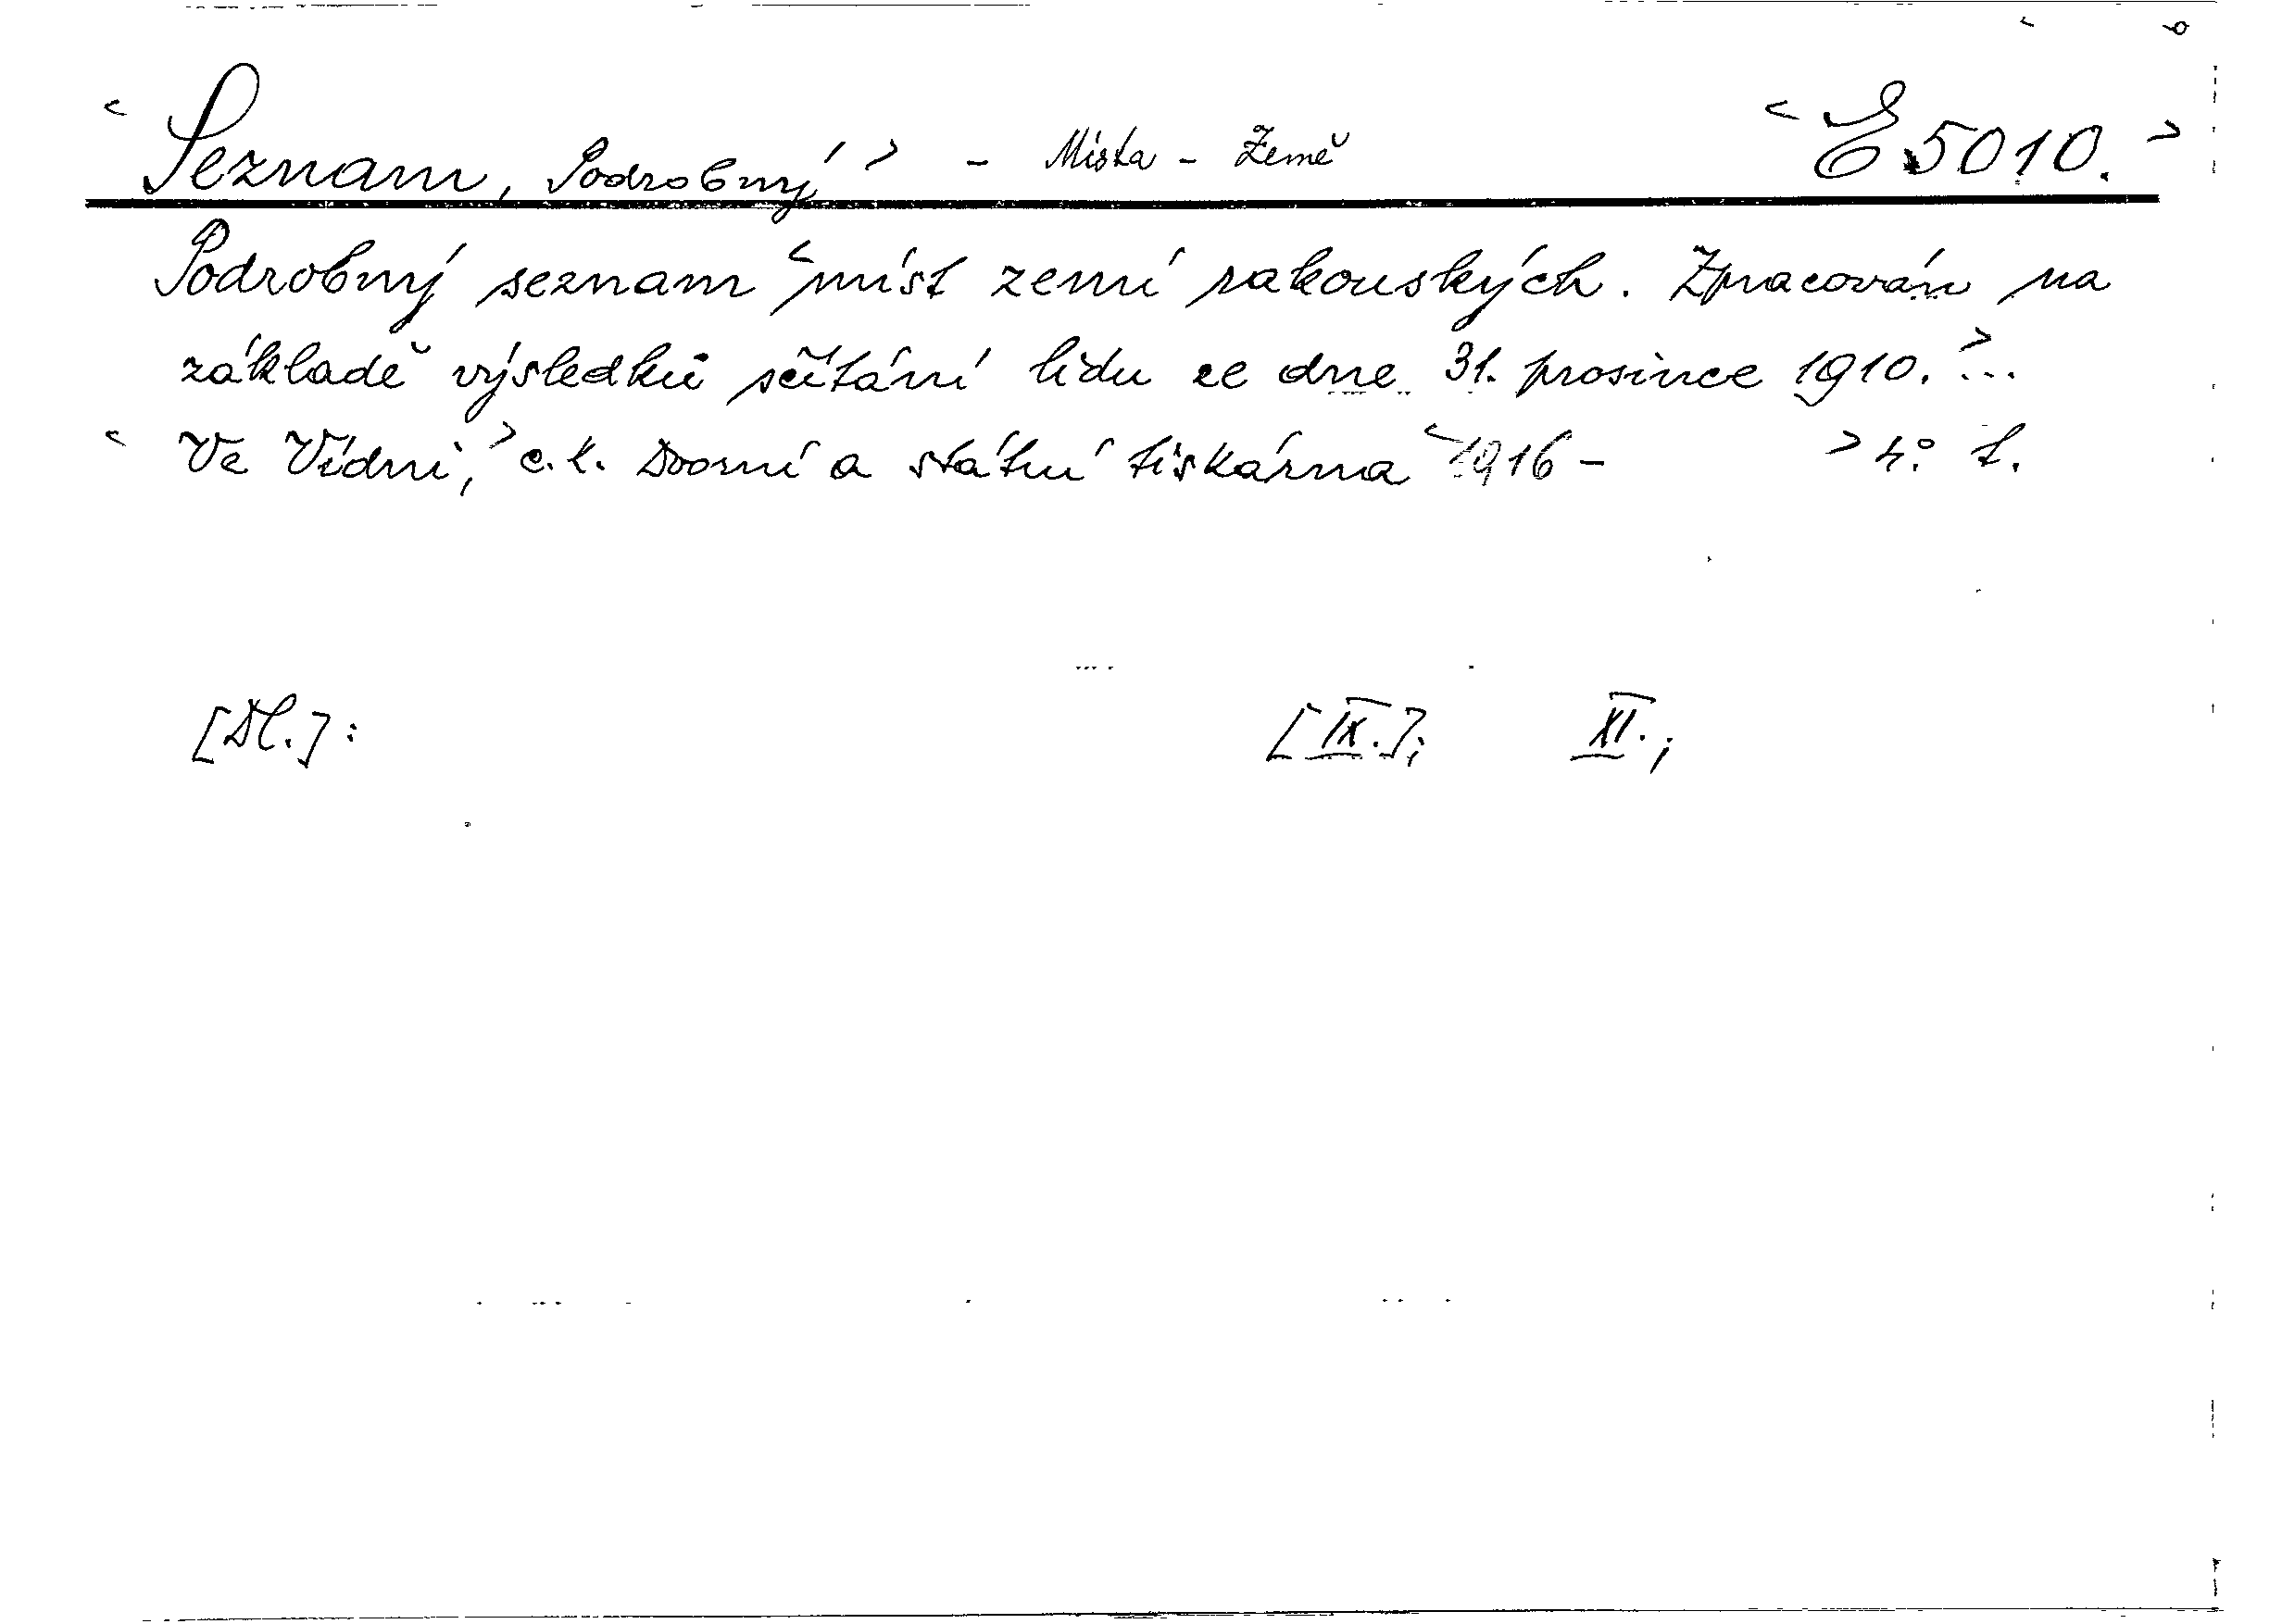 < Seznam, Podrobný > - Místa - Země < E 5010. >
Podrobný seznam < míst zemí rakouských. Zpracován na
základě výsledků sčítání lidu ze dne 31. prosince 1910. > ...
< Ve Vídni, > c. k. Dvorní a státní tiskárna < 1916 - > 4.° t.
[Dl.]: [IX.]; XI.;